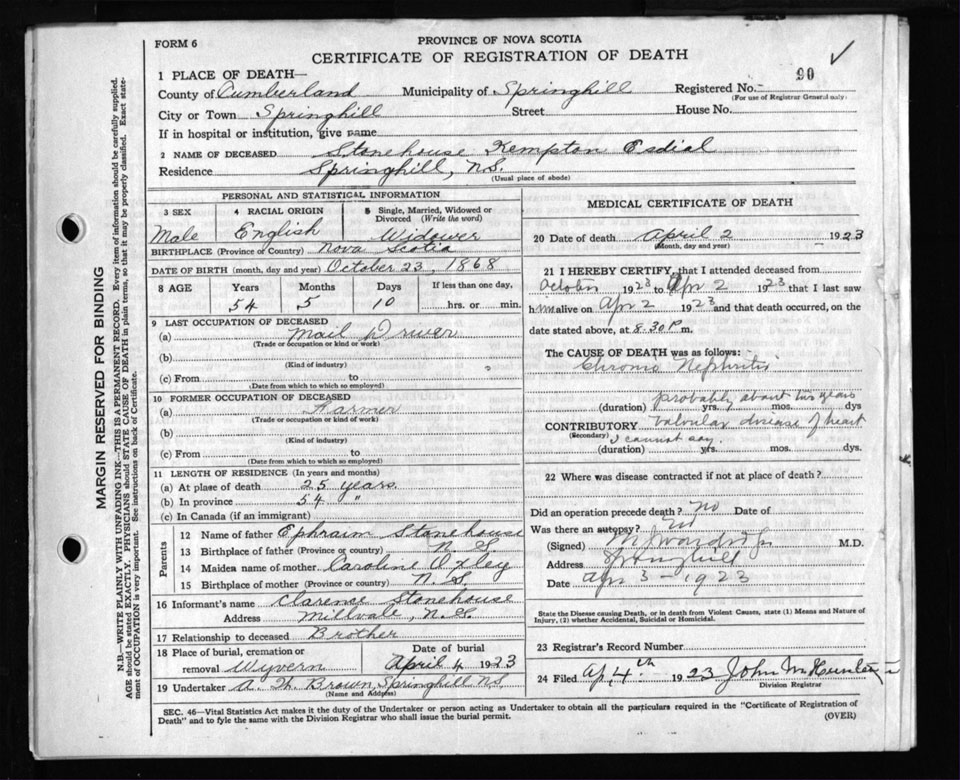 FORM 6
PROVINCE OF NOVA SCOTIA
CERTIFICATE OF REGISTRATION OF DEATH
90
1 PLACE OF DEATH—
County of Cumberland Municipality of Springhill Registered No.
(For use of Registrar General only)
City or Town Springhill Street House No.
If in hospital or institution, give name
2 NAME OF DECEASED Stonehouse Kempton Esdial
Residence Springhill, N.S.
(Usual place of abode)
MARGIN RESERVED FOR BINDING
N.B.—WRITE PLAINLY WITH UNFADING INK—THIS IS A PERMANENT RECORD. Every item of information should be carefully supplied.
AGE should be stated EXACTLY. PHYSICIANS should STATE CAUSE OF DEATH in plain terms, so that it may be properly classified. Exact state-
ment of OCCUPATION is very important. See instructions on back of Certificate.
PERSONAL AND STATISTICAL INFORMATION
3 SEX 4 RACIAL ORIGIN 5 Single, Married, Widowed or
Divorced (Write the word)
Male English Widower
BIRTHPLACE (Province or Country) Nova Scotia
DATE OF BIRTH (month, day and year) October 23, 1868
8 AGE Years Months Days If less than one day,
54 5 10 hrs. or min.
9 LAST OCCUPATION OF DECEASED
(a) Mail Driver
(Trade or occupation or kind of work)
(b)
(Kind of industry)
(c) From to
(Date from which to which so employed)
10 FORMER OCCUPATION OF DECEASED
(a) Farmer
(Trade or occupation or kind of work)
(b)
(Kind of industry)
(c) From to
(Date from which to which so employed)
11 LENGTH OF RESIDENCE (In years and months)
(a) At place of death 25 years
(b) In province 54 "
(c) In Canada (if an immigrant)
Parents
12 Name of father Ephraim Stonehouse
13 Birthplace of father (Province or country) N.S.
14 Maiden name of mother Caroline Oxley
15 Birthplace of mother (Province or country) N.S.
16 Informant's name Clarence Stonehouse
Address Millvale, N.S.
17 Relationship to deceased Brother
18 Place of burial, cremation or Date of burial
removal Wyvern April 4 1923
19 Undertaker A. H. Brown, Springhill N.S.
(Name and Address)
MEDICAL CERTIFICATE OF DEATH
20 Date of death April 2 1923
(Month, day and year)
21 I HEREBY CERTIFY, that I attended deceased from
October 1923 to Apr 2 1923 that I last saw
him alive on Apr 2 1923 and that death occurred, on the
date stated above, at 8.30 P m.
The CAUSE OF DEATH was as follows:
Chronic Nephritis
probably about two years
(duration) yrs. mos. dys
CONTRIBUTORY Valvular disease of heart
(Secondary) I cannot say.
(duration) yrs. mos. dys.
22 Where was disease contracted if not at place of death?
Did an operation precede death? No Date of
Was there an autopsy? No
(Signed) M.D.
Address Springhill
Date Apr 3 - 1923
State the Disease causing Death, or in death from Violent Causes, state (1) Means and Nature of
Injury, (2) whether Accidental, Suicidal or Homicidal.
23 Registrar's Record Number
24 Filed Ap. 4th 1923 John
Division Registrar
SEC. 46—Vital Statistics Act makes it the duty of the Undertaker or person acting as Undertaker to obtain all the particulars required in the "Certificate of Registration of
Death" and to fyle the same with the Division Registrar who shall issue the burial permit. (OVER)